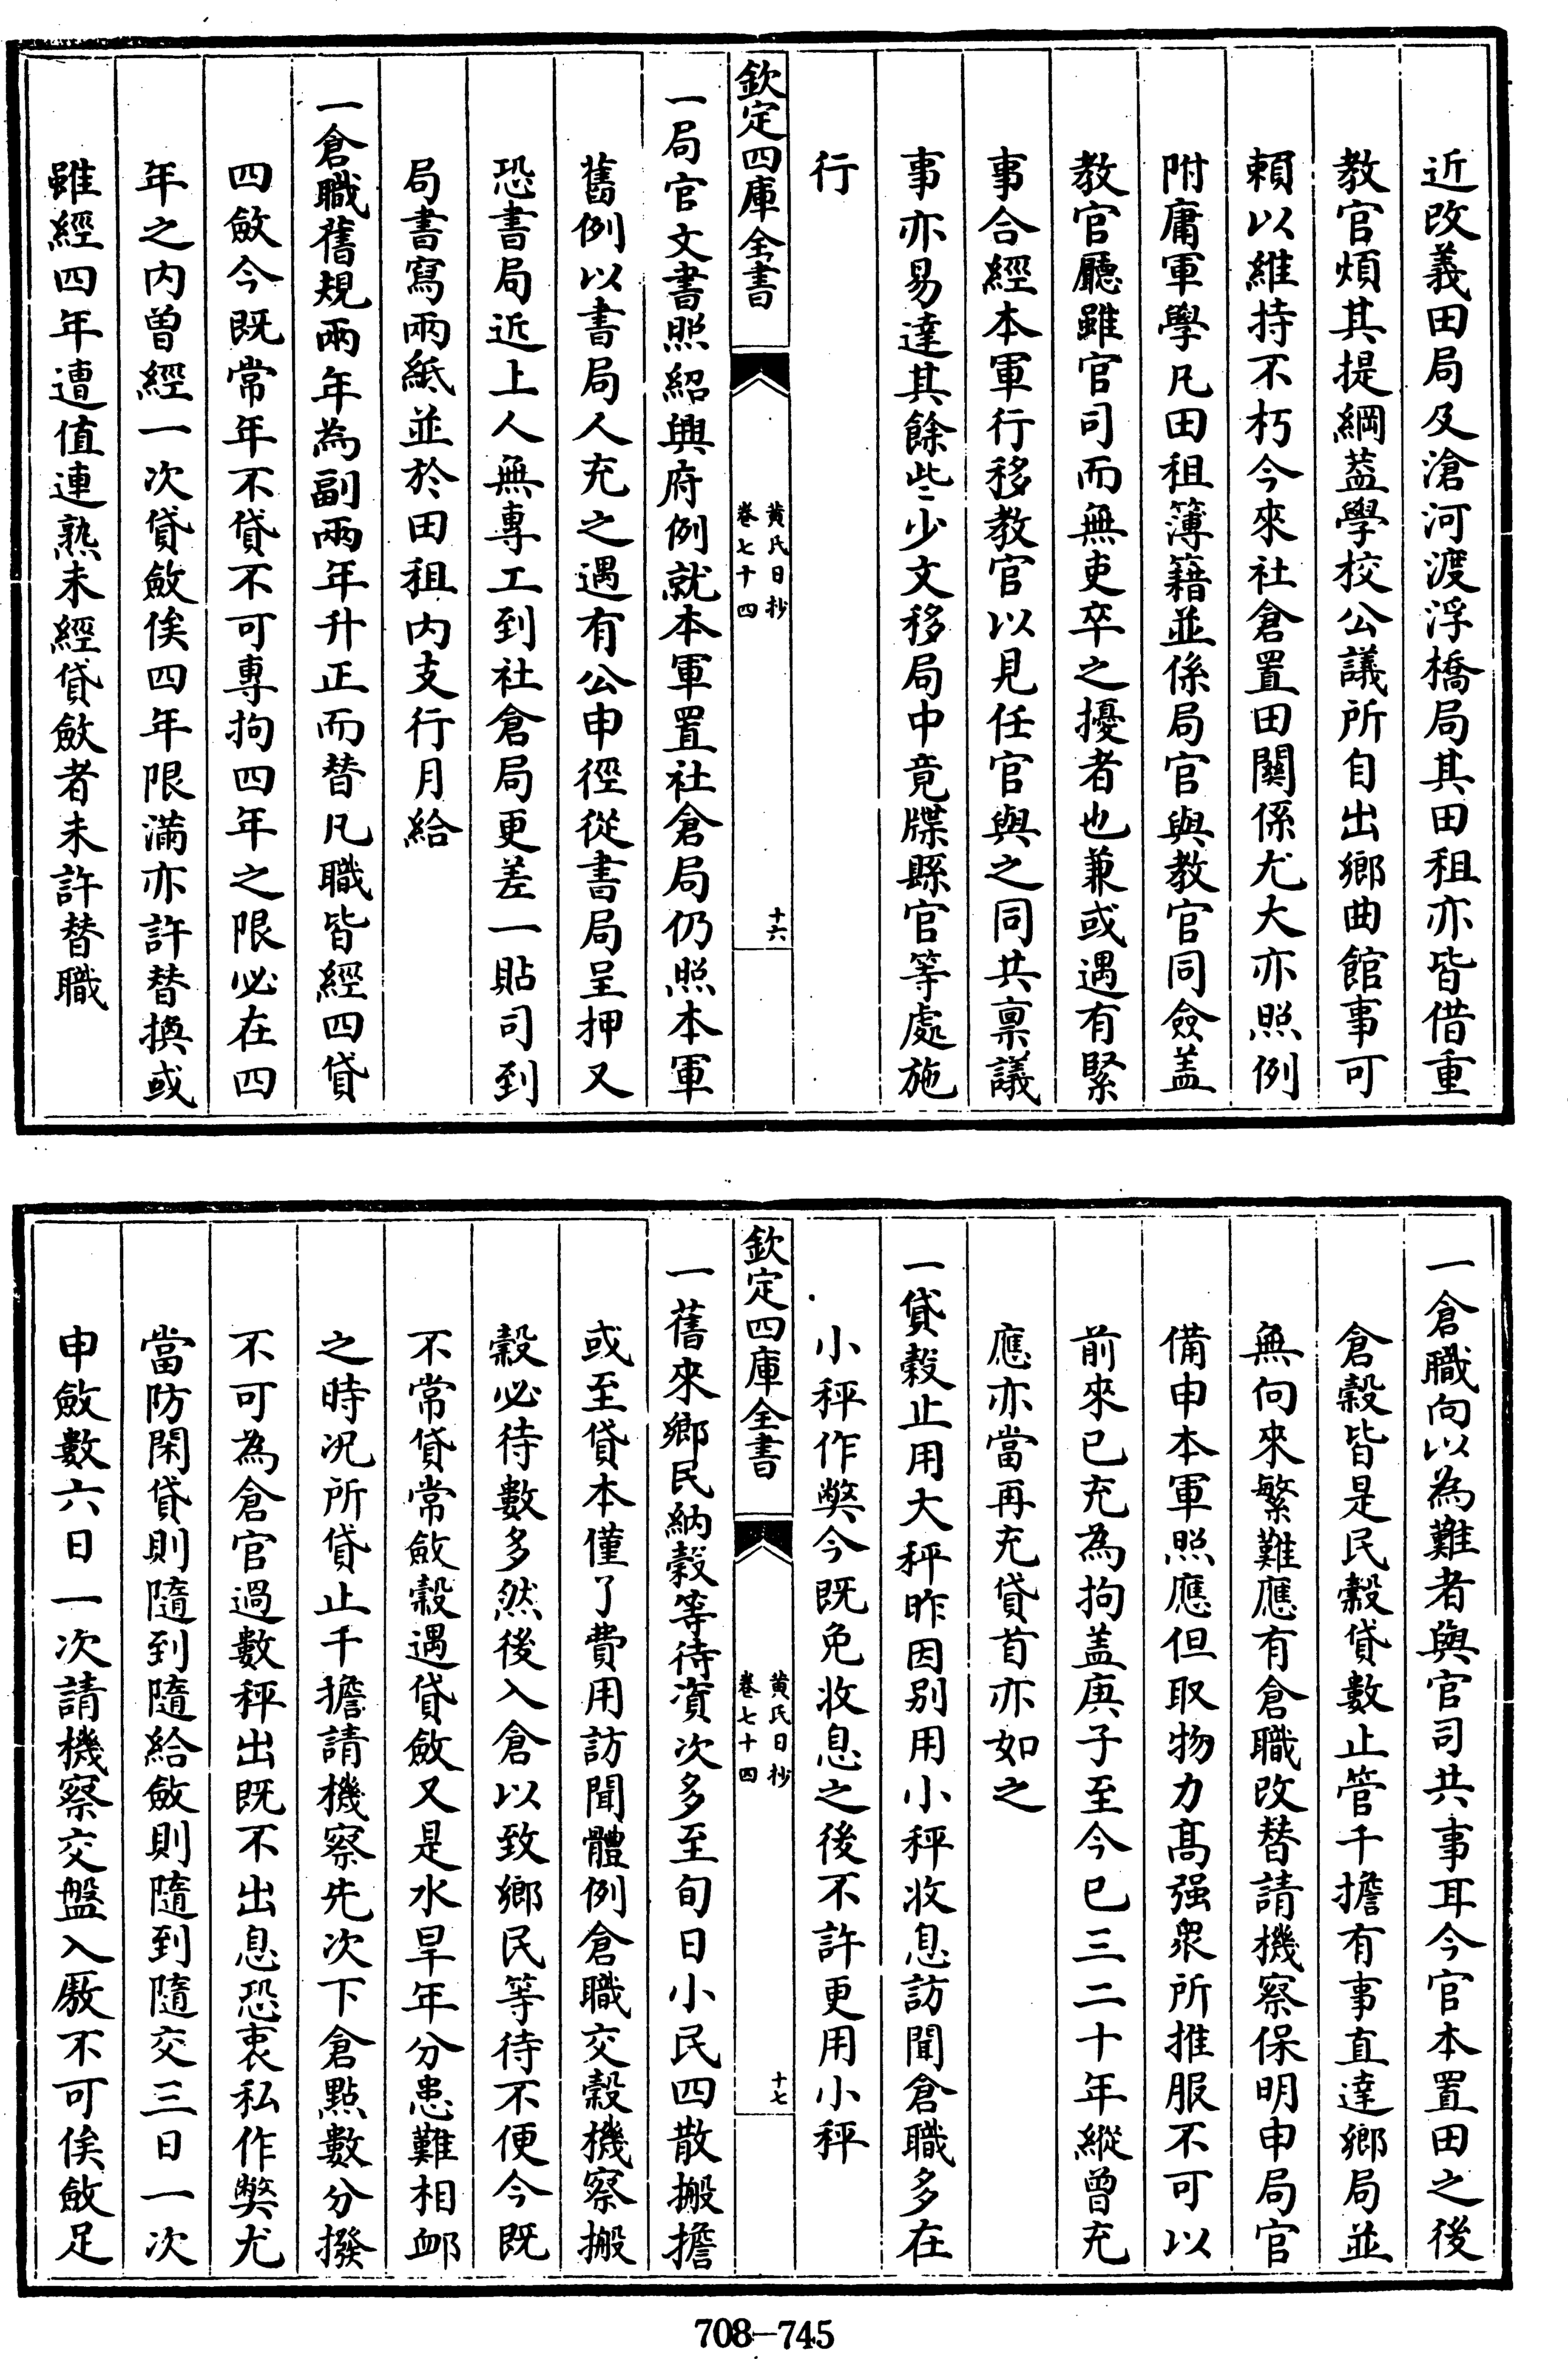 近改義田局及滄河渡浮橋局其田租亦皆借重
教官煩其提綱葢學校公議所自出鄉曲館事可
賴以維持不朽今來社倉置田關係尤大亦照例
附庸軍學凡田租簿籍並係局官與教官同僉盖
教官廳雖官司而無吏卒之擾者也兼或遇有緊
事合經本軍行移教官以見任官與之同共稟議
事亦易達其餘些少文移局中竟牒縣官等處施
行
欽定四庫全書
黄氏日抄
卷七十四
十六
一局官文書照紹興府例就本軍置社倉局仍照本軍
舊例以書局人充之遇有公申徑從書局呈押又
恐書局近上人無專工到社倉局更差一貼司到
局書寫兩紙並於田租内支行月給
一倉職舊規兩年為副兩年升正而替凡職皆經四貸
四斂今既常年不貸不可專拘四年之限必在四
年之内曾經一次貸斂俟四年限滿亦許替換或
雖經四年遭值連熟未經貸斂者未許替職
一倉職向以為難者與官司共事耳今官本置田之後
倉穀皆是民穀貸數止管千擔有事直達鄉局並
無向來繁難應有倉職改替請機察保明申局官
備申本軍照應但取物力髙强衆所推服不可以
前來已充為拘盖庚子至今已三二十年縱曾充
應亦當再充貸首亦如之
一貸穀止用大秤昨因别用小秤收息訪聞倉職多在
小秤作弊今既免收息之後不許更用小秤
欽定四庫全書
黄氏日抄
卷七十四
十七
一舊來鄉民納穀等待資次多至旬日小民四散搬擔
或至貸本僅了費用訪聞體例倉職交穀機察搬
穀必待數多然後入倉以致鄉民等待不便今既
不常貸常斂穀遇貸斂又是水旱年分患難相卹
之時况所貸止千擔請機察先次下倉點數分撥
不可為倉官過數秤出既不出息恐衷私作弊尤
當防閑貸則隨到隨給斂則隨到隨交三日一次
申斂數六日一次請機察交盤入厫不可俟斂足
708—745